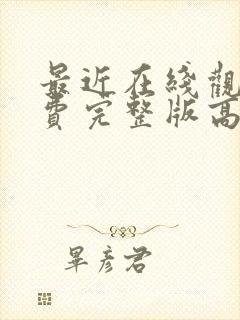 最近在綫觀
費完整版高
畢彥君